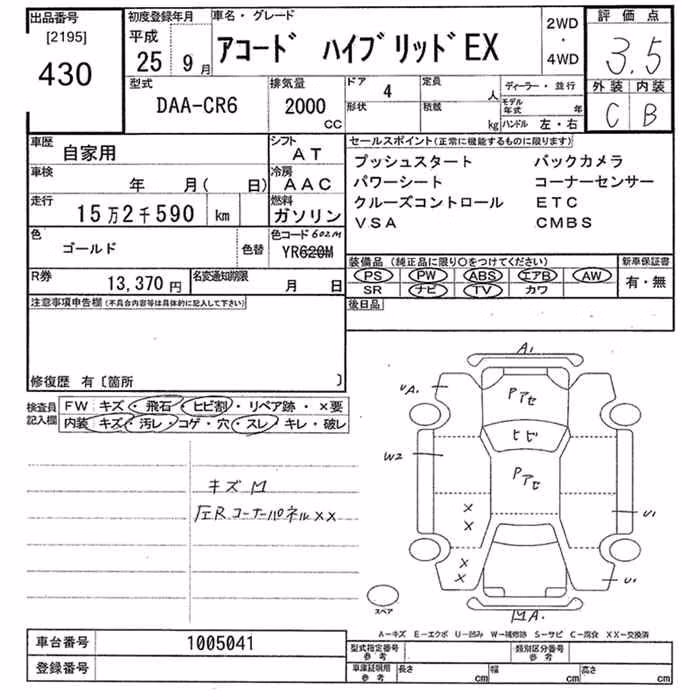 出品番号
[2195]
430
初度登録年月
平成
25 9月
車名・グレード
アコード ハイブリッドEX
2WD
・
4WD
評価点
3.5
外装 内装
C B
型式
DAA-CR6
排気量
2000
CC
ドア 4
形状
定員
人
積載
kg
ディーラー・並行
モデル年式 年
ハンドル 左・右
車歴
自家用
シフト
AT
車検
年 月( 日)
冷房
AAC
走行
15万2千590 km
燃料
ガソリン
色
ゴールド
色替
色コード 602M
YR620M
R券
13,370円
名変通知期限
月 日
セールスポイント(正常に機能するものに限ります)
プッシュスタート バックカメラ
パワーシート コーナーセンサー
クルーズコントロール ETC
VSA CMBS
装備品(純正品に限り○をつけてください)
PS PW ABS エアB AW
SR ナビ TV カワ
新車保証書
有・無
後日品
注意事項申告欄(不具合内容等は具体的に記入して下さい)
修復歴 有〔箇所 〕
検査員記入欄
FW キズ・飛石・ヒビ割・リペア跡・×要
内装 キズ・汚レ・コゲ・穴・スレ・キレ・破レ
キズM
左Rコーナーパネル××
A1
UA1
Pアセ
ヒビ
W2
Pアセ
×
×
U1
×
×
U1
スペア
MA1
A-キズ E-エクボ U-凹み W-補修跡 S-サビ C-腐食 XX-交換済
車台番号
1005041
登録番号
型式指定番号
参考
類別区分番号
参考
車庫証明用
参考
長さ cm 幅 cm 高さ cm